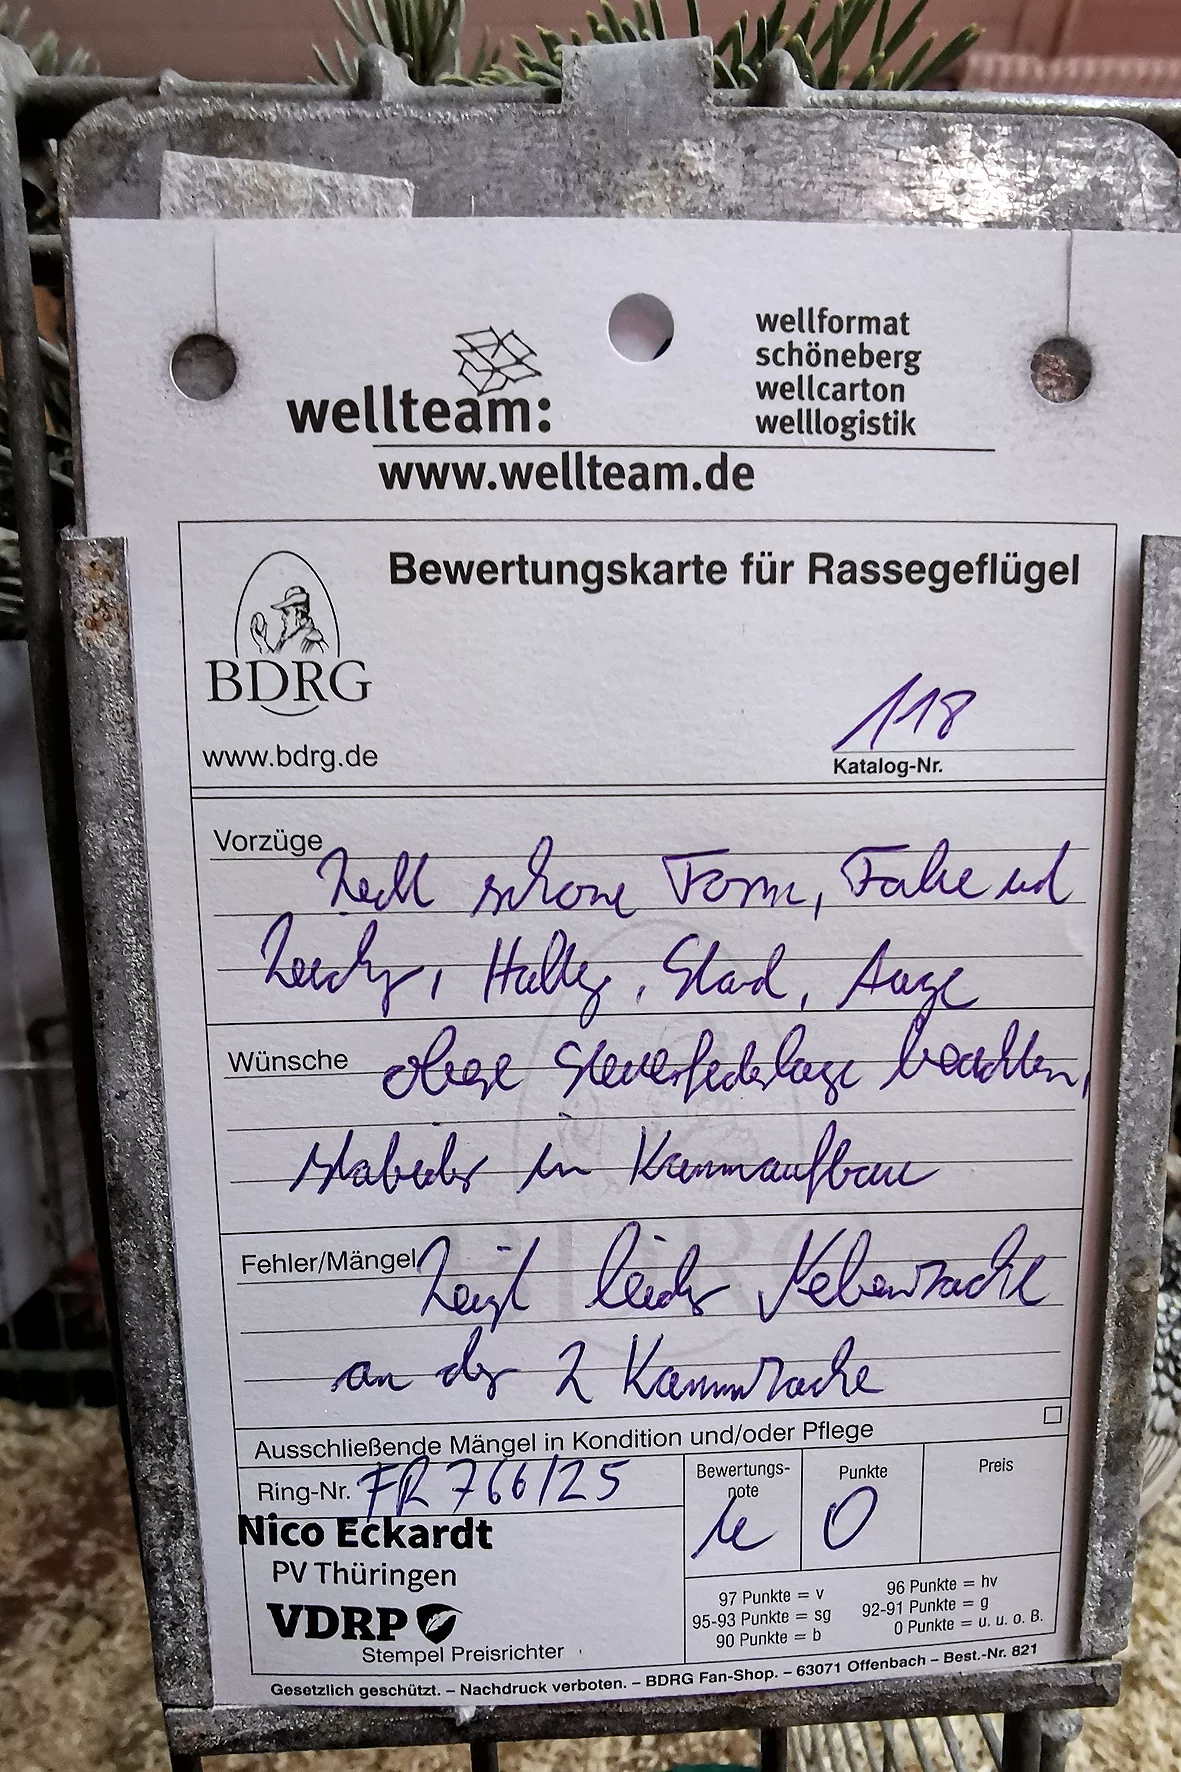 wellteam:
www.wellteam.de
wellformat
schöneberg
wellcarton
welllogistik
BDRG
www.bdrg.de
Bewertungskarte für Rassegeflügel
118
Katalog-Nr.
Vorzüge
Recht schöne Form, Farbe und
Zeichng, Haltg, Stand, Auge
Wünsche obere Steuerfederlage beachten,
stabiler in Kammaufbau
Fehler/Mängel Zeigt leider Nebenzacke
an der 2 Kammzacke
Ausschließende Mängel in Kondition und/oder Pflege
Ring-Nr. FR 766/25
Nico Eckardt
PV Thüringen
VDRP
Stempel Preisrichter
Bewertungs-
note
u
Punkte
0
Preis
97 Punkte = v
95-93 Punkte = sg
90 Punkte = b
96 Punkte = hv
92-91 Punkte = g
0 Punkte = u. u. o. B.
Gesetzlich geschützt. – Nachdruck verboten. – BDRG Fan-Shop. – 63071 Offenbach – Best.-Nr. 821